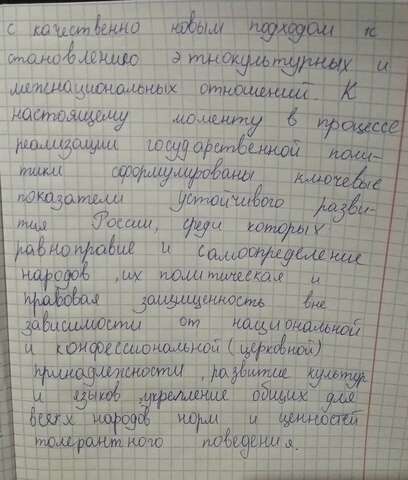 с качественно новым подходом к
становлению этнокультурных и
межнациональных отношений. К
настоящему моменту в процессе
реализации государственной поли-
тики сформулированы ключевые
показатели устойчивого разви-
тия России, среди которых
равноправие и самоопределение
народов, их политическая и
правовая защищенность вне
зависимости от национальной
и конфессиональной (церковной)
принадлежности, развитие культур
и языков, укрепление общих для
всех народов норм и ценностей
толерантного поведения.